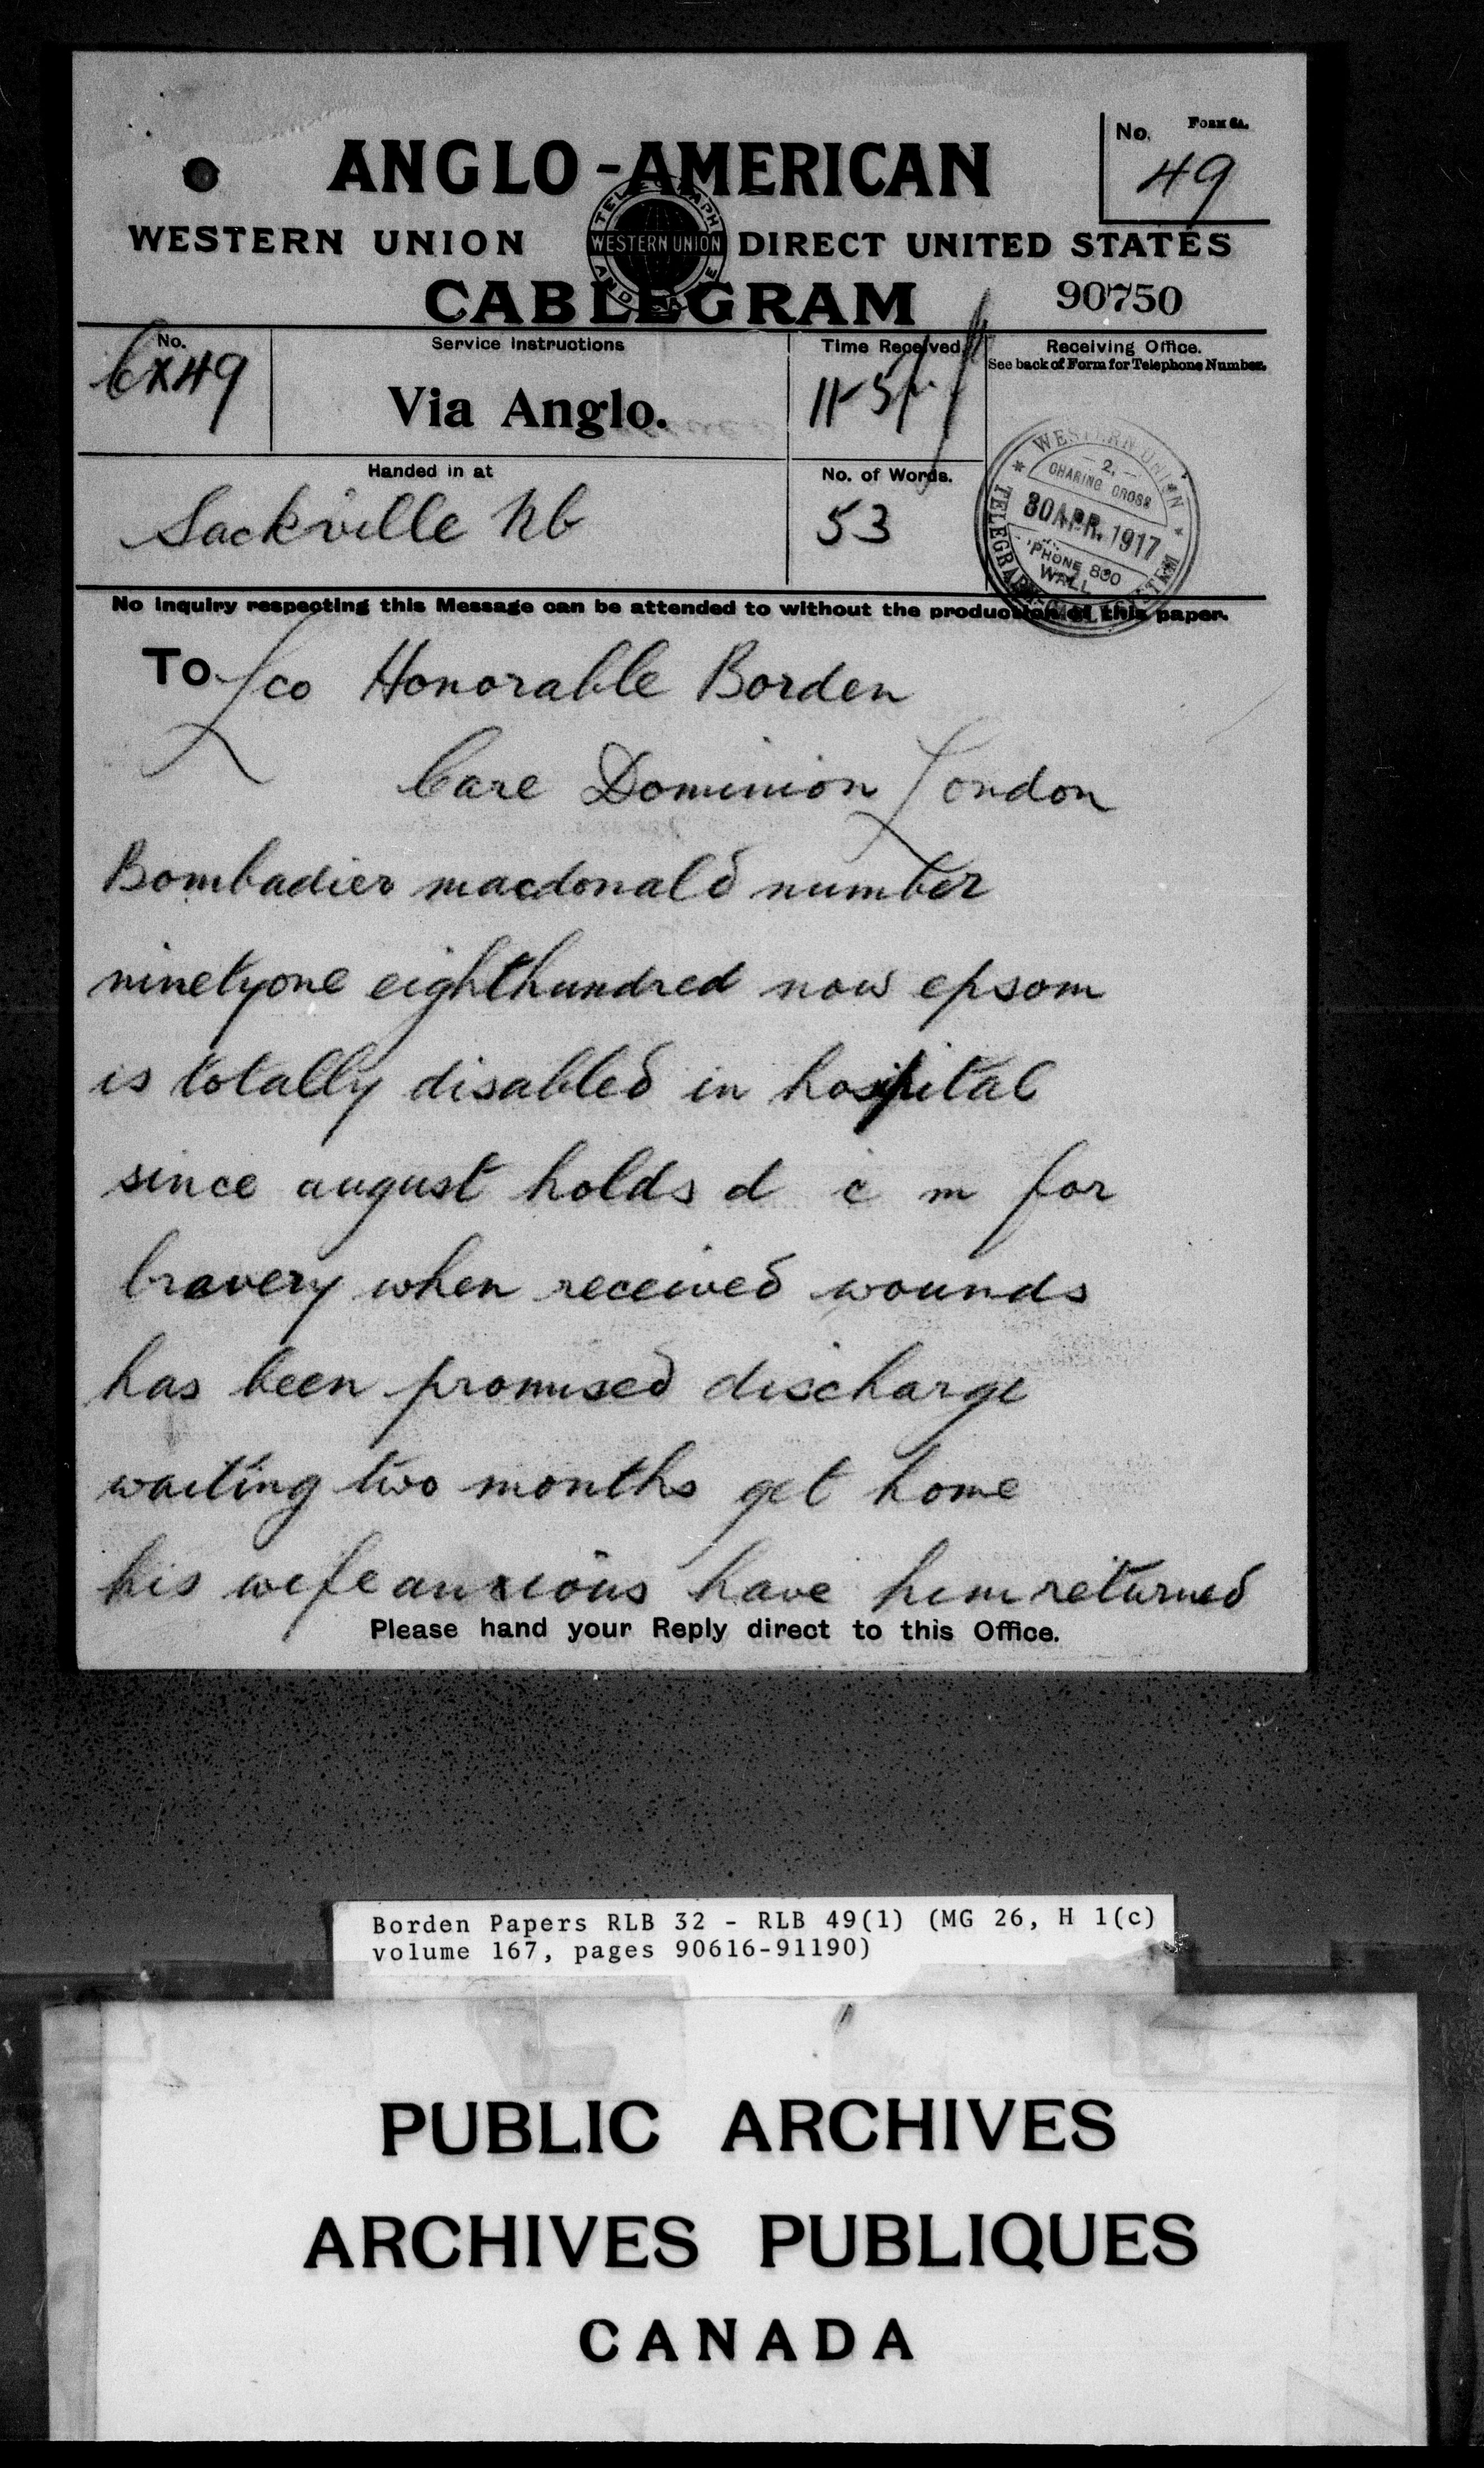 No. Form 6A.
49
ANGLO-AMERICAN
TELEGRAPH AND CABLE
WESTERN UNION
WESTERN UNION DIRECT UNITED STATES
CABLEGRAM 90750
No. Service Instructions Time Received. Receiving Office.
See back of Form for Telephone Number.
Cx49 Via Anglo.
Handed in at No. of Words.
Sackville Nb 53
WESTERN UNION
2,
CHARING CROSS
30 APR. 1917
'PHONE 800
WALL
TELEGRAPH SYSTEM
No inquiry respecting this Message can be attended to without the production of this paper.
To Lco Honorable Borden
Care Dominion London
Bombadier macdonald number
ninetyone eighthundred now epsom
is totally disabled in hospital
since august holds d c m for
bravery when received wounds
has been promised discharge
waiting two months get home
his wife anxious have him returned
Please hand your Reply direct to this Office.
Borden Papers RLB 32 - RLB 49(1) (MG 26, H 1(c)
volume 167, pages 90616-91190)
PUBLIC ARCHIVES
ARCHIVES PUBLIQUES
CANADA